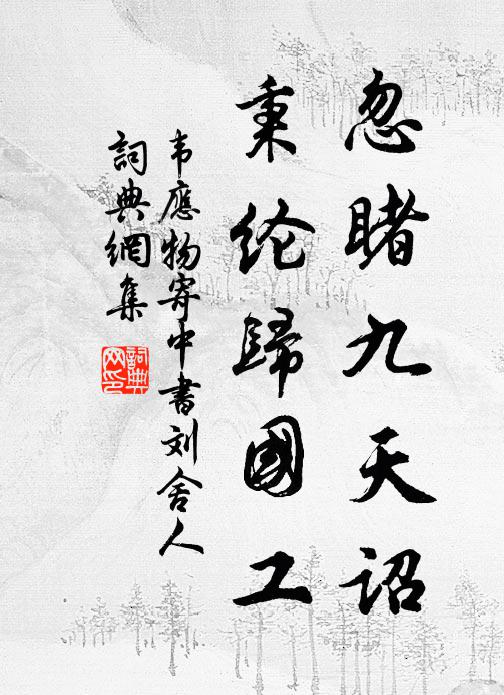 忽睹九天诏
秉纶歸國工
韦應物寄中書刘舍人
詞典網集
詞典网印